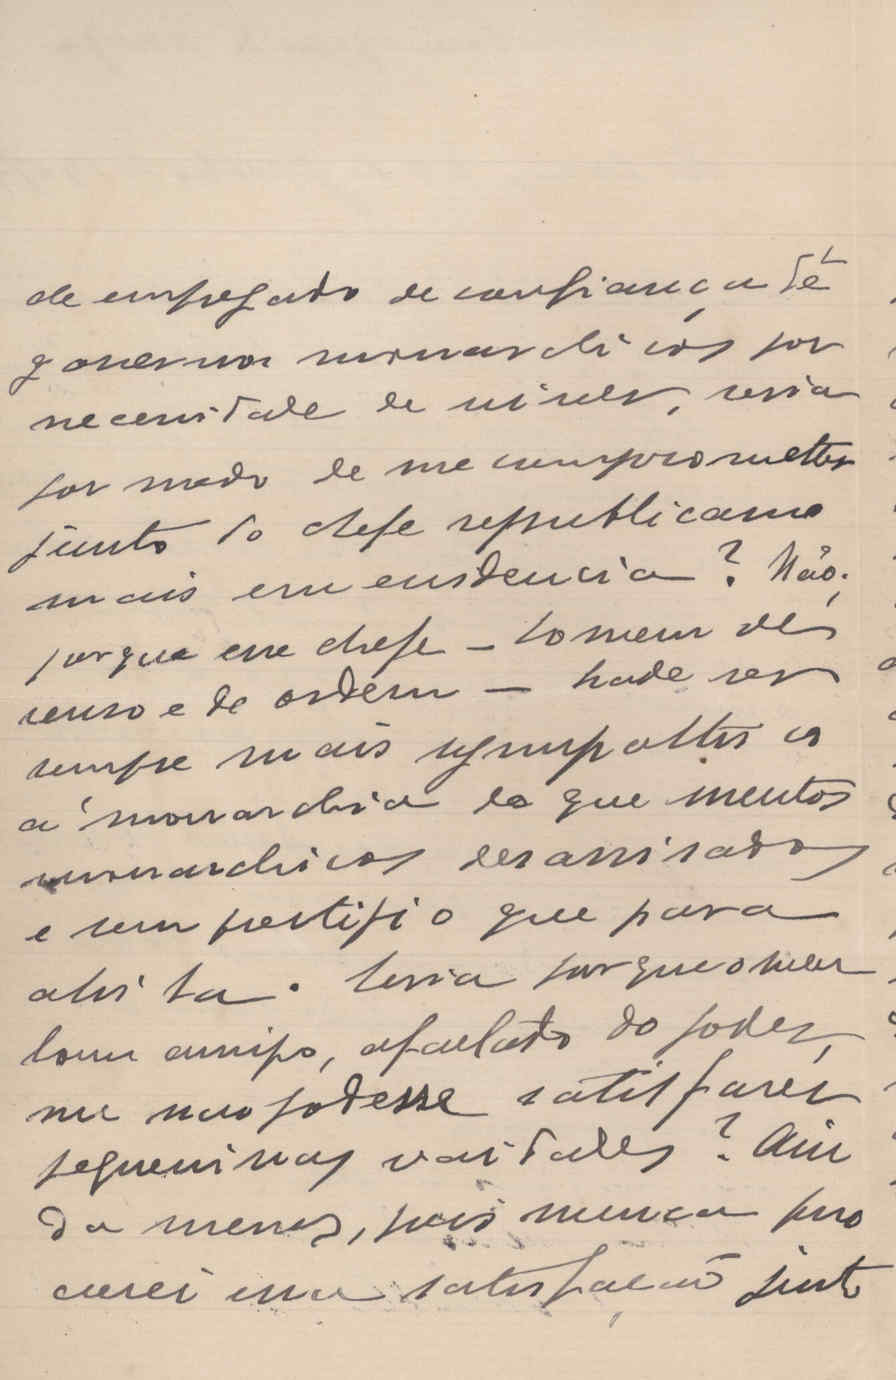 de empregado de confiança de
governos monarchicos por
necessidade de viver, seria
por medo de me comprometter
junto do chefe republicano
mais em evidencia? Não;
porque esse chefe – homem de
senso e de ordem – hade ser
sempre mais sympathico
á monarchia do que muitos
monarchicos desassisados
e sem prestigio que para
ahi ha. Seria porque o meu
bom amigo, afastado do poder,
me não podesse satisfazer
pequeninas vaidades? Ain
da menos, pois nunca pro
curei essa satisfação junto